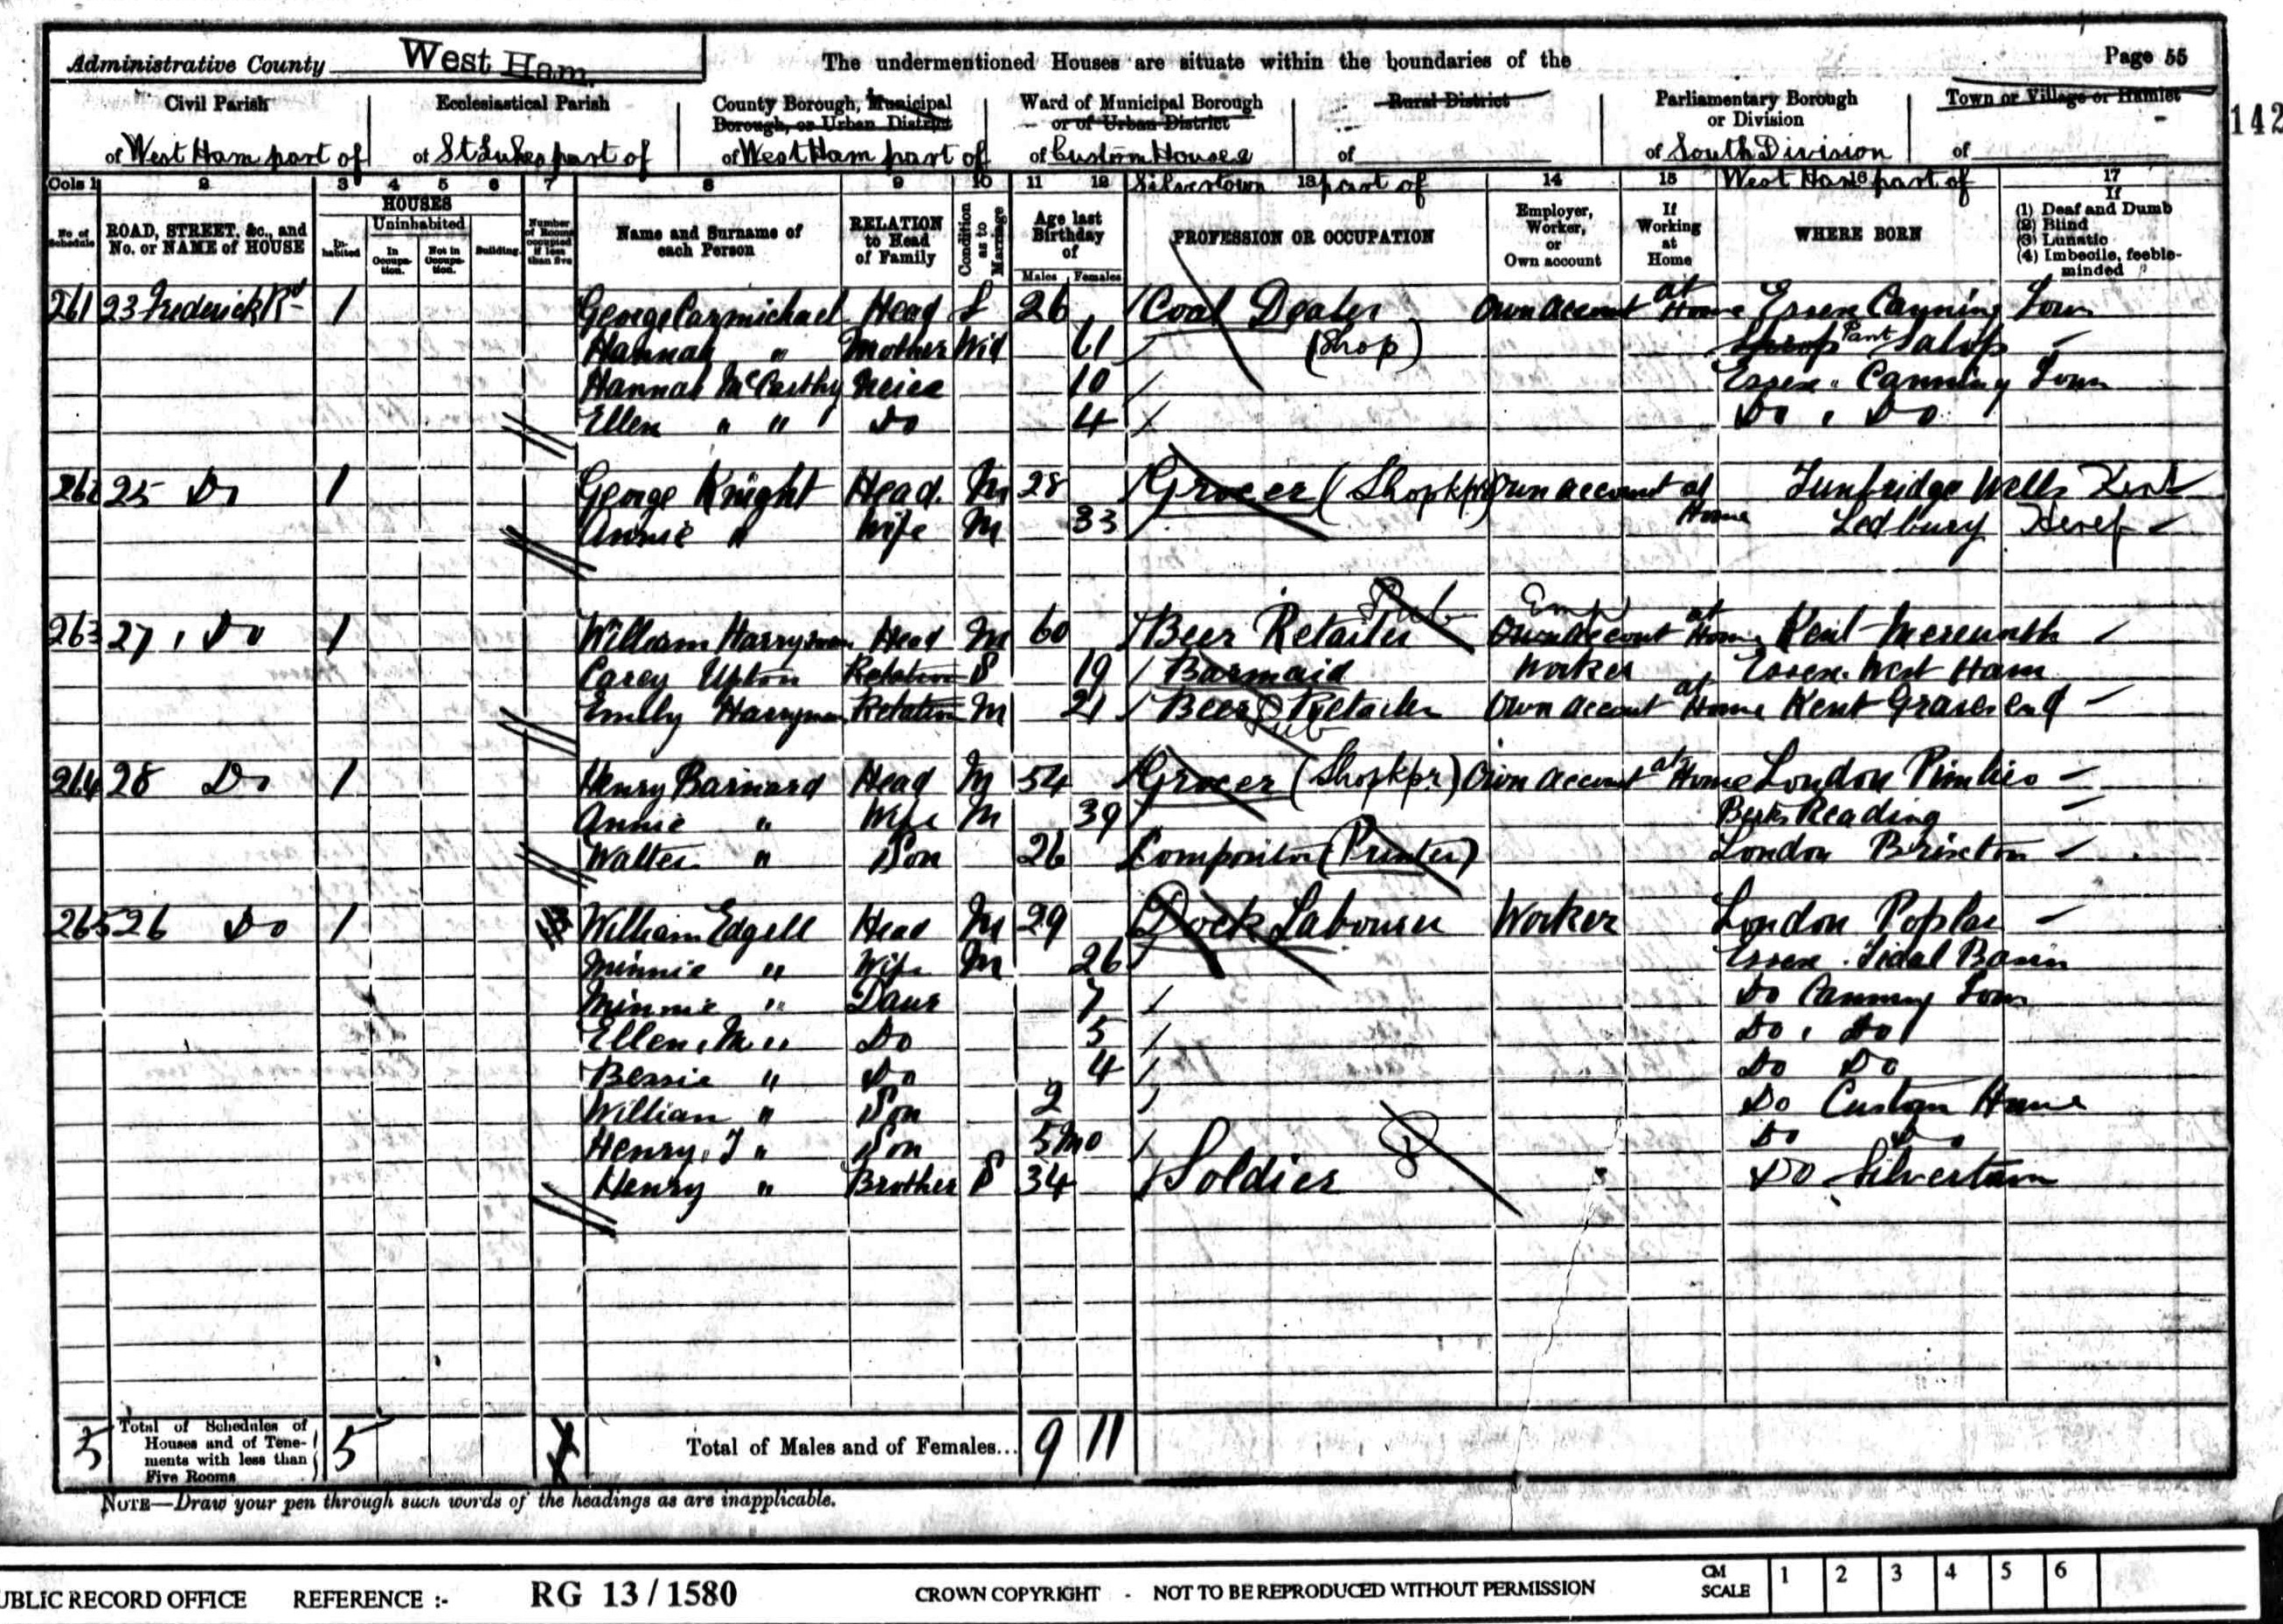 Administrative County West Ham. The undermentioned Houses are situate within the boundaries of the Page 55
Civil Parish Ecclesiastical Parish County Borough, Municipal Borough, or Urban District Ward of Municipal Borough or of Urban District Rural District Parliamentary Borough or Division Town or Village or Hamlet
142
of West Ham part of of St Lukes part of of West Ham part of of Custom House & Silvertown part of of of South Division West Ham part of of
Cols 1 2 3 4 5 6 7 8 9 10 11 12 13 14 15 16 17
No. of Schedule ROAD, STREET, &c., and No. or NAME of HOUSE HOUSES Inhabited Uninhabited In Occupation. Not in Occupation. Building. Number of Rooms occupied if less than five Name and Surname of each Person RELATION to Head of Family Condition as to Marriage Age last Birthday of Males Females PROFESSION OR OCCUPATION Employer, Worker, or Own account If Working at Home WHERE BORN If (1) Deaf and Dumb (2) Blind (3) Lunatic (4) Imbecile, feeble-minded
261 23 Frederick Rd 1 George Carmichael Head S 26 Coal Dealer Own account at Home Essex Canning Town
Hannah " Mother Wid 61 (Shop) Pant Salop
Hannah McCarthy Neice 10 Essex Canning Town
Ellen " " Do 4 Do Do
262 25 Do 1 George Knight Head M 28 Grocer (Shopkpr) Own account at Home Tunbridge Wells Kent
Annie " Wife M 33 Ledbury Heref
Pub Emp
263 27 Do 1 William Harryman Head M 60 Beer Retailer Own account at Home Kent
Carey Upton Relation S 19 Barmaid Worker Essex West Ham
Emily Harryman Relation M 21 Beer Retailer Own account at Home Kent Gravesend
Pub
264 28 Do 1 Henry Barnard Head M 54 Grocer (Shopkpr) Own account at Home London Pimlico
Annie " Wife M 39 Berks Reading
Walter " Son 26 Compositor (Printer) London Brixton
265 26 Do 1 William Edgell Head M 29 Dock Labourer Worker London Poplar
Minnie " Wife M 26 Essex Tidal Basin
Minnie " Daur 7 Do Canning Town
Ellen M " Do 5 Do Do
Bessie " Do 4 Do Do
William " Son 2 Do Custom House
Henry J " Son 5 mo Do Do
Henry " Brother S 34 Soldier Do Silvertown
5 Total of Schedules of Houses and of Tenements with less than Five Rooms 5 Total of Males and of Females... 9 11
NOTE—Draw your pen through such words of the headings as are inapplicable.
UBLIC RECORD OFFICE REFERENCE :- RG 13 / 1580 CROWN COPYRIGHT - NOT TO BE REPRODUCED WITHOUT PERMISSION CM SCALE 1 2 3 4 5 6